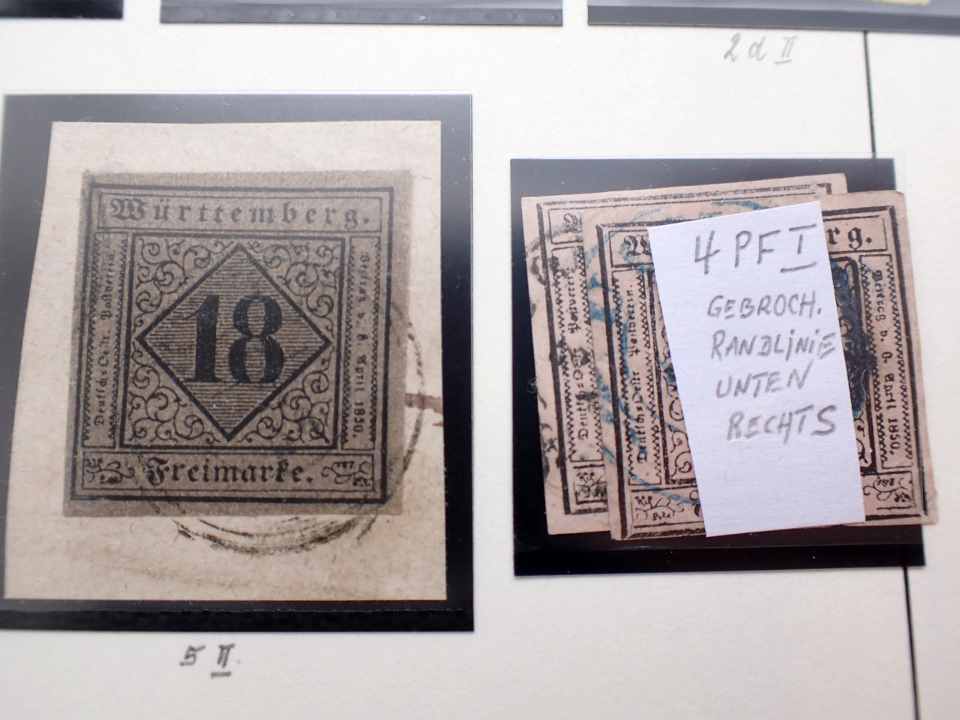 2 d II
Württemberg.
Deutsch-Oestr. Postverein.
18
Vertrag v. 6. April 1850.
Freimarke.
5 II.
rg.
4 PF I
GEBROCH.
RANDLINIE
UNTEN
RECHTS
Postverein
Deutsch-Oestr. Postverein.
Vertrag v. 6. April 1850.